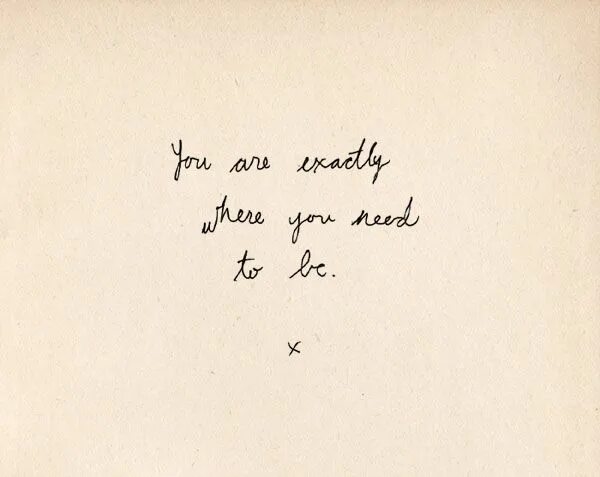 You are exactly
where you need
to be.
x